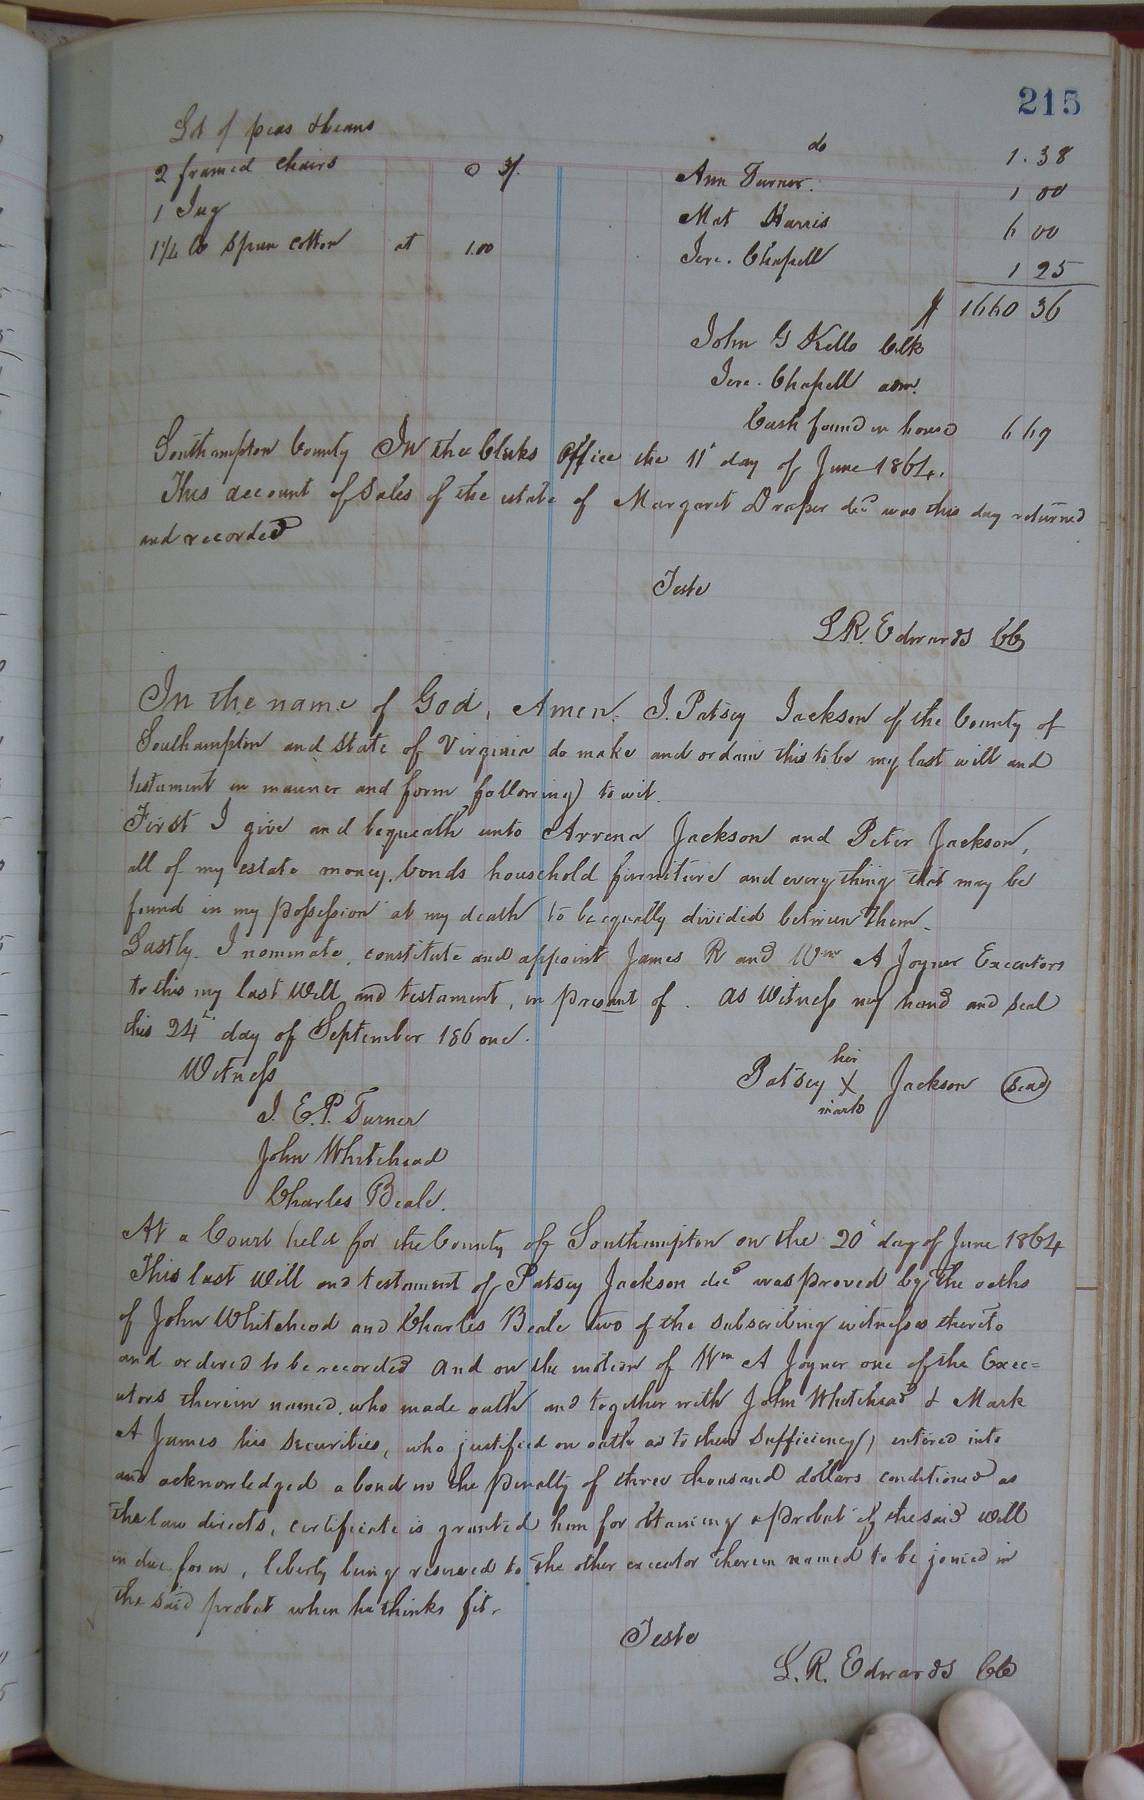 215
Lot of peas & beans do 1.38
2 framed chairs @ 3/. Ann Turner. 1 00
1 Jug Mat Harris 6 00
1¼ lb Spun cotton at 1.00 Jere. Chapell 1 25
$ 1660 36
John G Kello Clk
Jere. Chapell adm.
Cash found in house 6 69
Southampton County In the Clerks Office the 11 day of June 1864.
This account of Sales of the estate of Margaret Draper decd was this day returned
and recorded
Teste
L R. Edwards CC
In the name of God, Amen. I. Patsey Jackson of the County of
Southampton and State of Virginia do make and ordain this to be my last will and
testament in manner and form following to wit.
First I give and bequeath unto Arrena Jackson and Peter Jackson,
all of my estate money, bonds household furniture and every thing that may be
found in my possession at my death to be equally divided between them.
Lastly. I nominate, constitute and appoint James R and Wm A Joyner Executors
to this my last Will and testament, in present of. As Witness my hand and seal
this 24th day of September 186 one.
Witness
Patsey her X mark Jackson Seal
J. E. P. Turner
John Whitehead
Charles Beale.
At a Court held for the County of Southampton on the 20 day of June 1864
This last Will and testament of Patsey Jackson decd was proved by the oaths
of John Whitehead and Charles Beale two of the subscribing witnesses thereto
and ordered to be recorded And on the motion of Wm A Joyner one of the Exec=
utors therein named, who made oath and together with John Whitehead & Mark
A James his Securities, who justified on oath as to their Sufficiency, entered into
and acknowledged a bond in the penalty of three thousand dollars conditioned as
the law directs, certificate is granted him for obtaining a probat of the said Will
in due form, liberty being reserved to the other executor therein named to be joined in
the said probat when he thinks fit.
Teste
L. R. Edwards CC